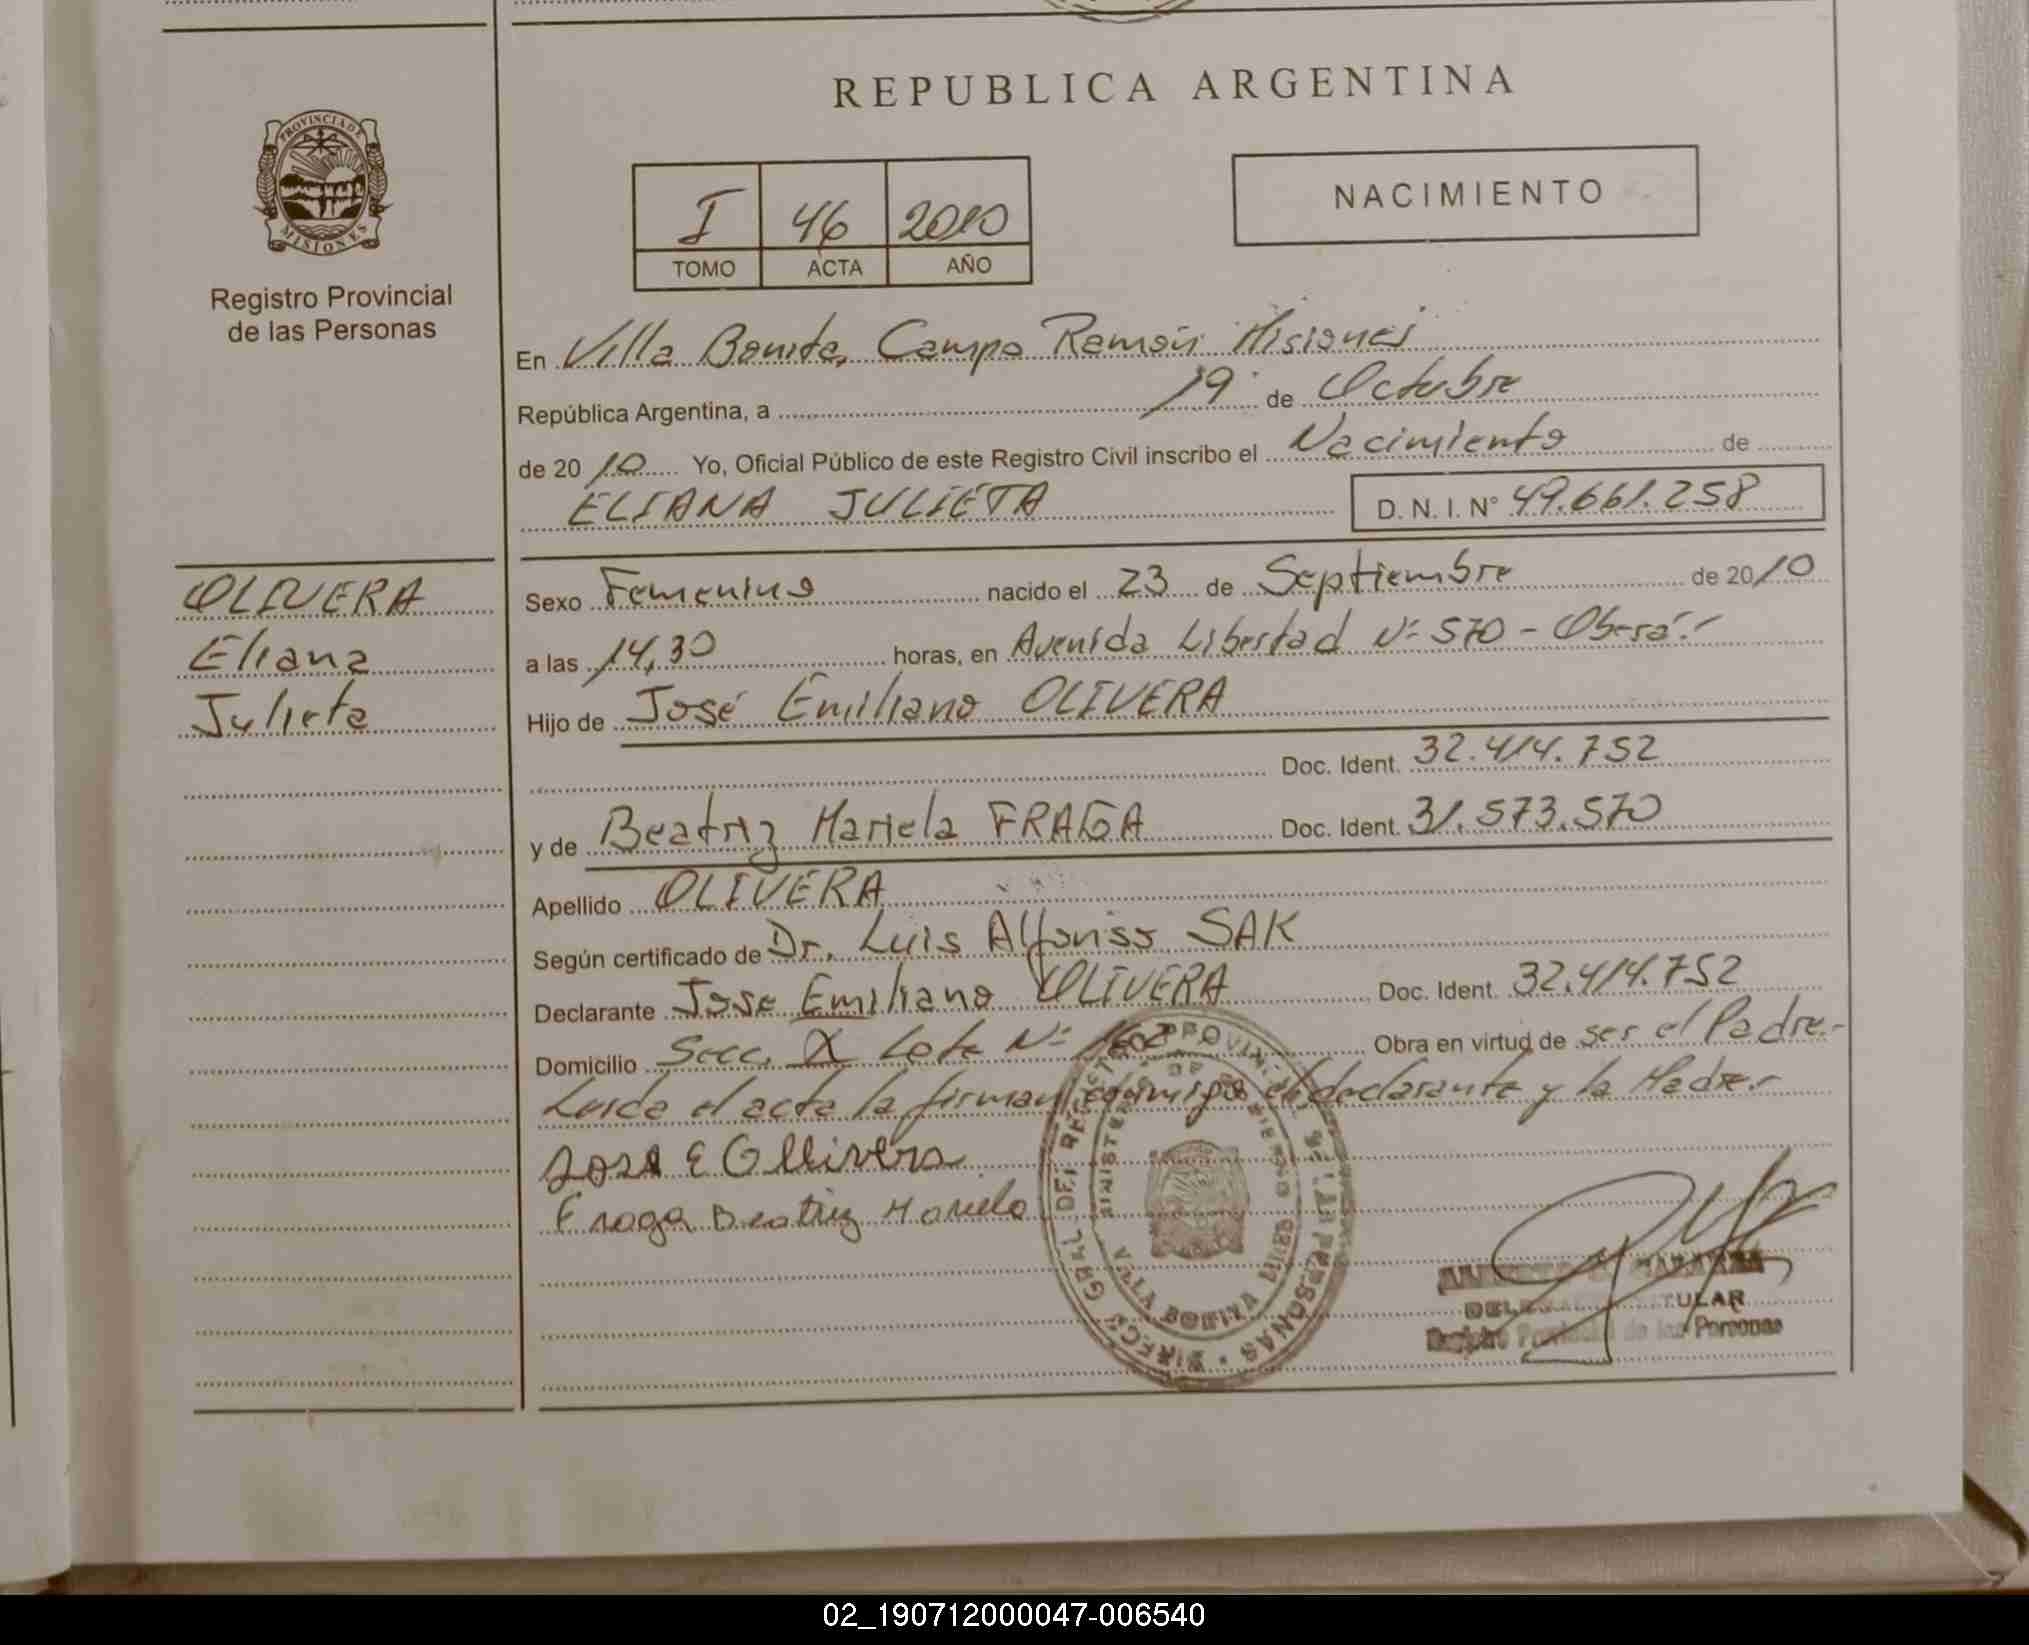 REPUBLICA ARGENTINA
PROVINCIA DE
MISIONES
Registro Provincial
de las Personas
I 46 2010
TOMO ACTA AÑO
NACIMIENTO
En Villa Bonita, Campo Ramón Misiones
República Argentina, a 19 de Octubre
de 2010 Yo, Oficial Público de este Registro Civil inscribo el Nacimiento de
ELIANA JULIETA D. N. I. N° 49.661.258
OLIVERA
Eliana
Julieta
Sexo Femenino nacido el 23 de Septiembre de 2010
a las 14,30 horas, en Avenida Libertad N° 570 - Oberá.-
Hijo de José Emiliano OLIVERA
Doc. Ident. 32.414.752
y de Beatriz Mariela FRAGA Doc. Ident. 31.573.570
Apellido OLIVERA
Según certificado de Dr. Luis Alfonso SAK
Declarante Jose Emiliano OLIVERA Doc. Ident. 32.414.752
Domicilio Secc. X Lote N° 162 Obra en virtud de ser el Padre.-
Leída el acta la firman conmigo el declarante y la Madre.-
Jose E Ollivera
Fraga Beatriz Mariela
VILLA BONITA
TITULAR
Registro Provincial de las Personas
02_190712000047-006540